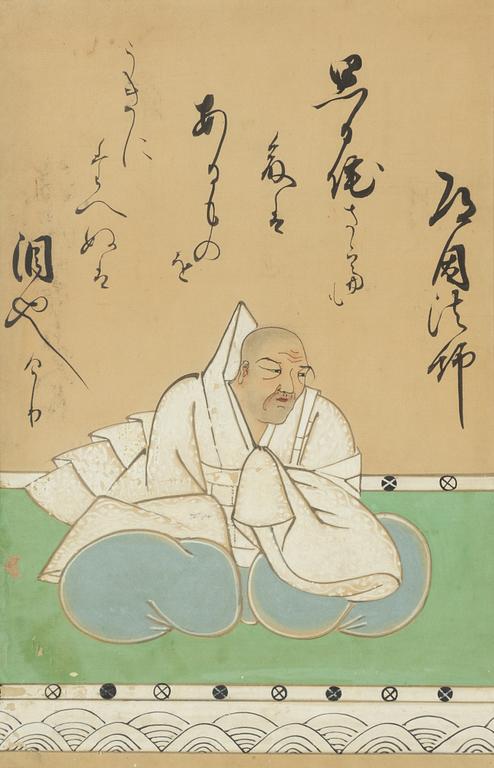 道因法師
思ひ侘さても
命は
あるものを
うきに
たへぬは
泪也けり